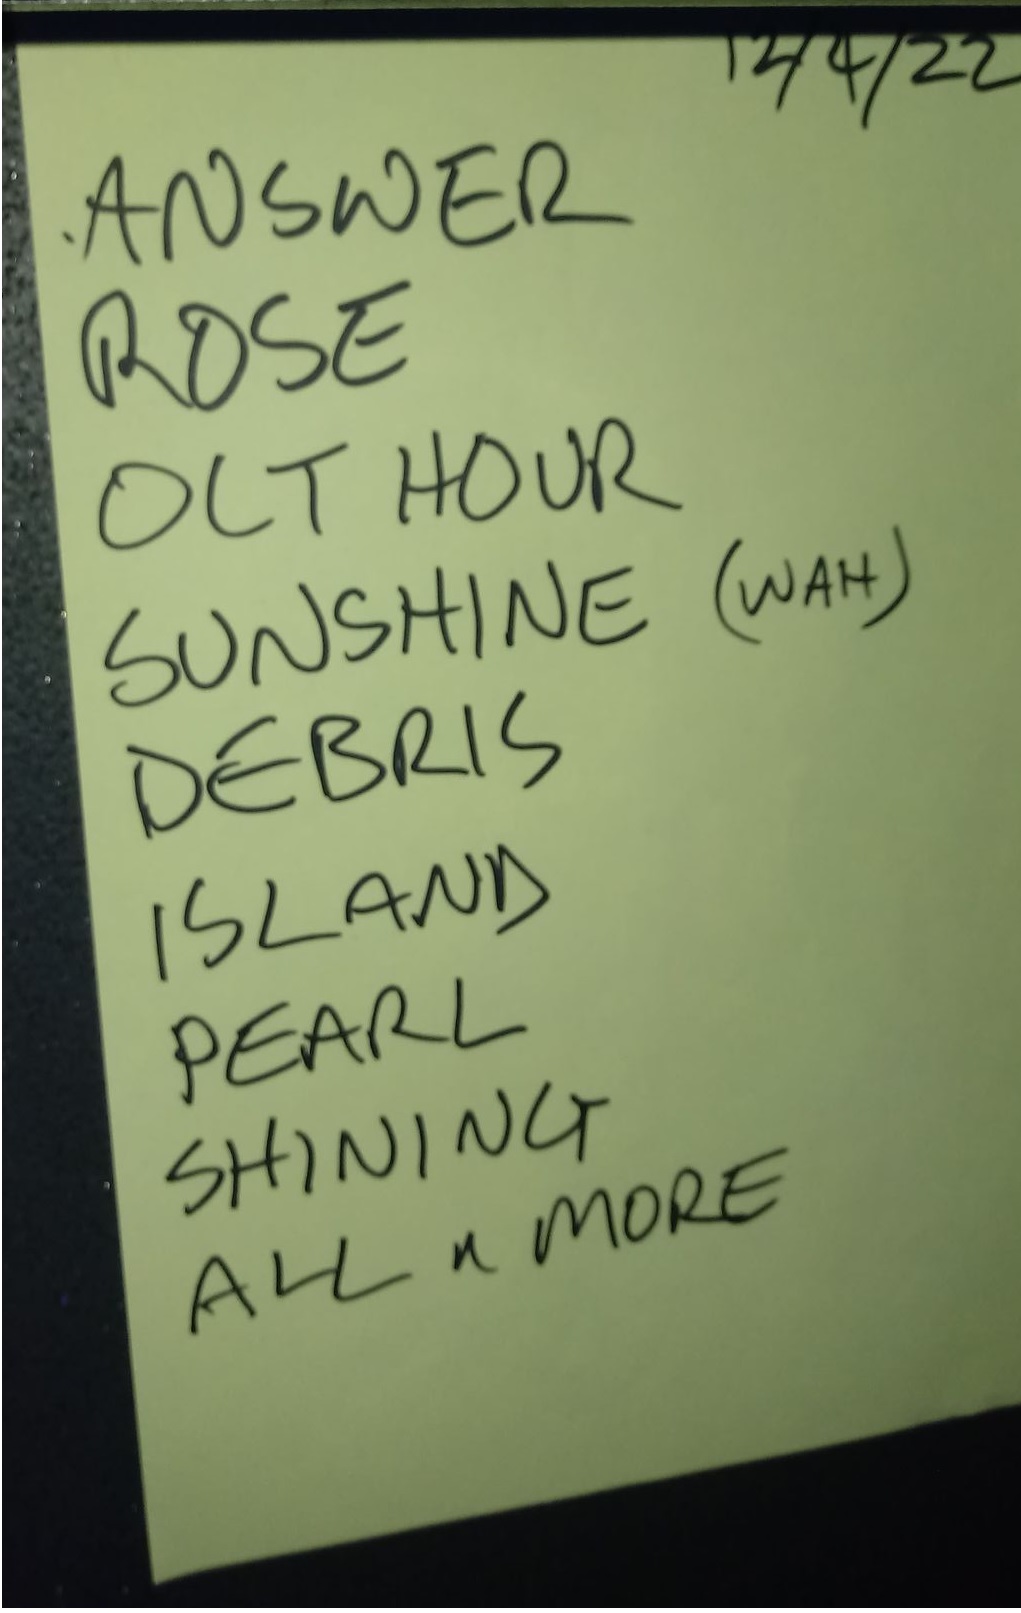 12/4/22
ANSWER
ROSE
OLT HOUR
SUNSHINE (WAH)
DEBRIS
ISLAND
PEARL
SHINING
ALL n MORE